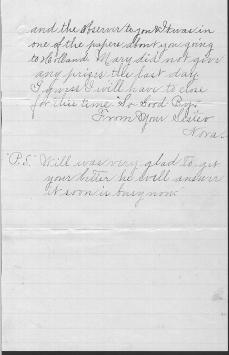 and the Observer to you & It was in
one of the papers about you going
to Holland. Mary did not give
any prizes the last day
I guess I will have to close
for this time So Good Bye.
From Your Sister
Nora
"P.S." Will was very glad to get
your letter he will answer
it soon is busy now